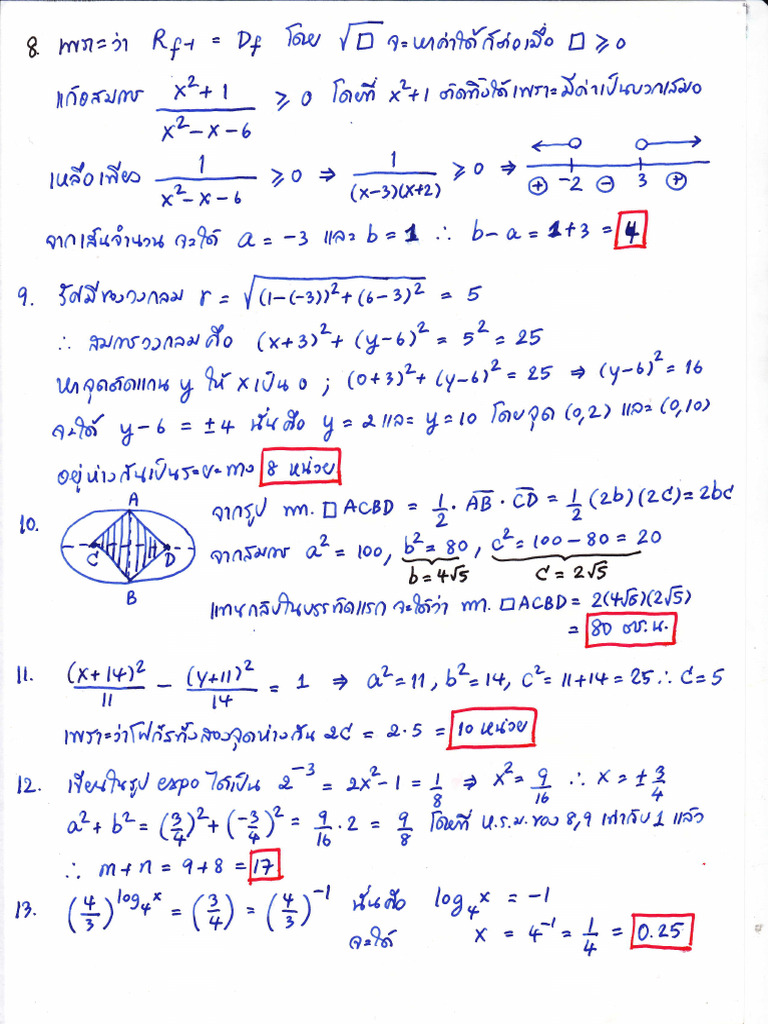 8. เพราะว่า R_f-1 = D_f โดย √□ จะหาค่าได้ก็ต่อเมื่อ □ ≥ 0
แก้อสมการ (x²+1)/(x²-x-6) ≥ 0 โดยที่ x²+1 ตัดทิ้งได้เพราะมีค่าเป็นบวกเสมอ
เหลือเพียง 1/(x²-x-6) ≥ 0 ⇒ 1/((x-3)(x+2)) ≥ 0 ⇒ ⊕ -2 ⊖ 3 ⊕
จากเส้นจำนวน จะได้ a = -3 และ b = 1 ∴ b-a = 1+3 = 4
9. รัศมีของวงกลม r = √((1-(-3))²+(6-3)²) = 5
∴ สมการวงกลมคือ (x+3)²+(y-6)² = 5² = 25
หาจุดตัดแกน y ให้ x เป็น 0 ; (0+3)²+(y-6)² = 25 ⇒ (y-6)² = 16
จะได้ y-6 = ±4 นั่นคือ y = 2 และ y = 10 โดยจุด (0,2) และ (0,10)
อยู่ห่างกันเป็นระยะทาง 8 หน่วย
10. A C D B
จากรูป พท. □ACBD = 1/2 · AB · CD = 1/2 (2b)(2c) = 2bc
จากสมการ a² = 100, b² = 80, c² = 100-80 = 20
b = 4√5 c = 2√5
แทนกลับในบรรทัดแรก จะได้ว่า พท. □ACBD = 2(4√5)(2√5)
= 80 ตร.น.
11. (x+14)²/11 - (y+11)²/14 = 1 ⇒ a² = 11, b² = 14, c² = 11+14 = 25 ∴ c = 5
เพราะว่าโฟกัสทั้งสองจุดห่างกัน 2c = 2·5 = 10 หน่วย
12. เขียนในรูป expo ได้เป็น 2⁻³ = 2x²-1 = 1/8 ⇒ x² = 9/16 ∴ x = ±3/4
a²+b² = (3/4)²+(-3/4)² = 9/16 · 2 = 9/8 โดยที่ ห.ร.ม. ของ 8,9 เท่ากับ 1 แล้ว
∴ m+n = 9+8 = 17
13. (4/3)^(log₄x) = (3/4) = (4/3)⁻¹ นั่นคือ log₄x = -1
จะได้ x = 4⁻¹ = 1/4 = 0.25